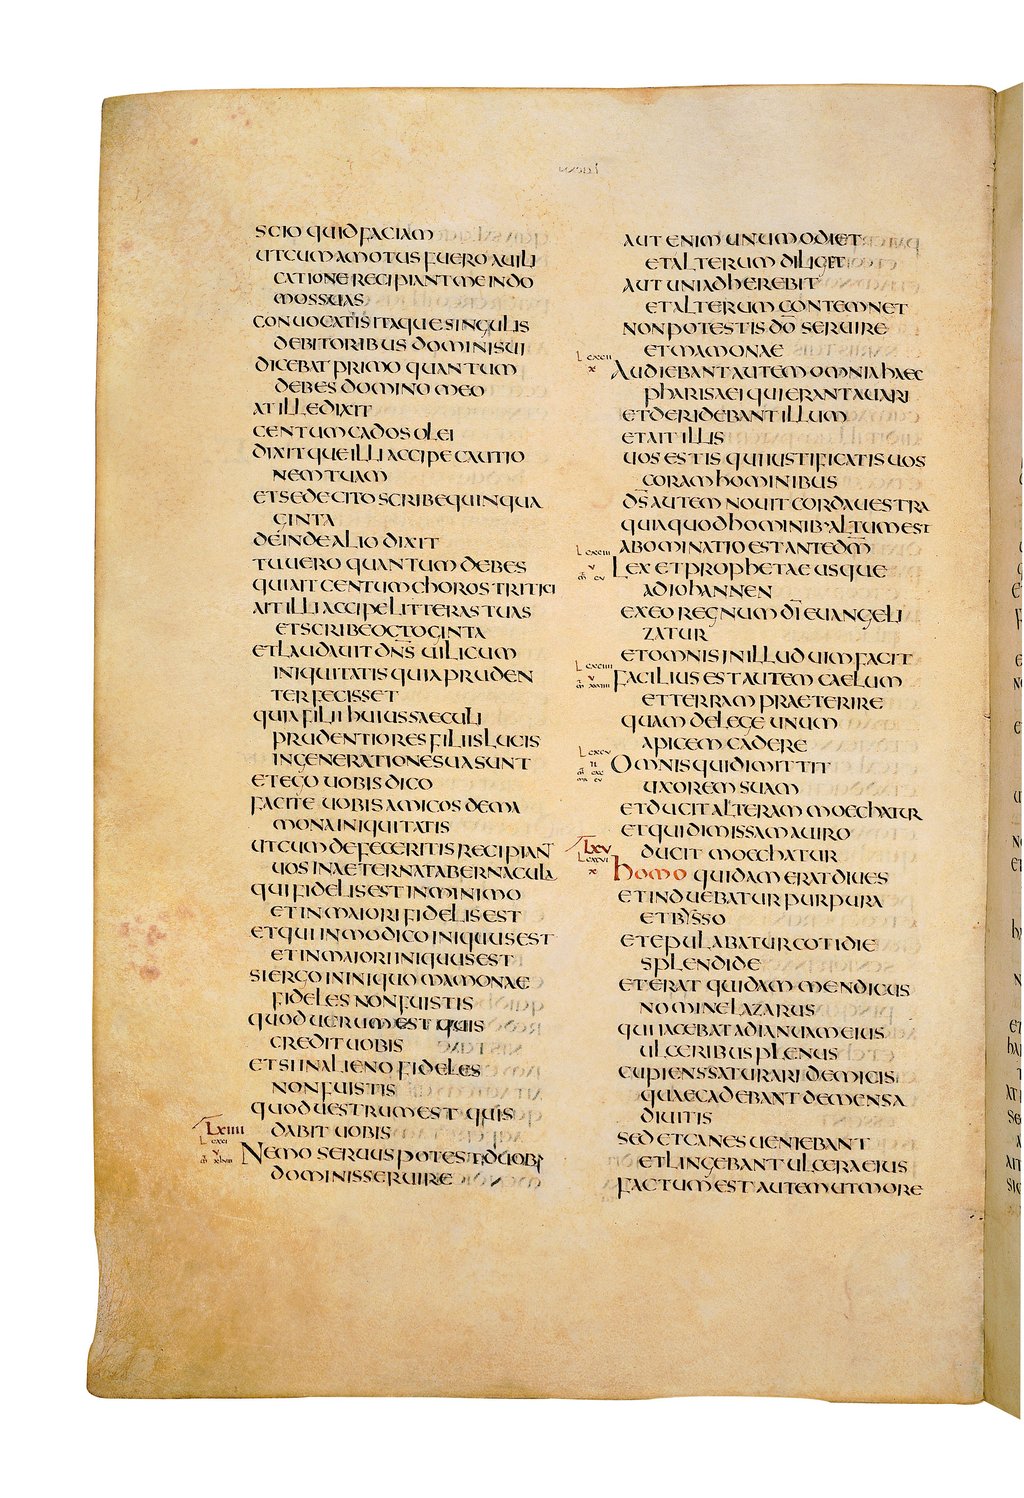 SCIO QUID FACIAM
UT CUM AMOTUS FUERO A UILI
CATIONE RECIPIANT ME IN DO
MOS SUAS
CONUOCATIS ITAQUE SINGULIS
DEBITORIBUS DOMINI SUI
DICEBAT PRIMO QUANTUM
DEBES DOMINO MEO
AT ILLE DIXIT
CENTUM CADOS OLEI
DIXITQUE ILLI ACCIPE CAUTIO
NEM TUAM
ET SEDE CITO SCRIBE QUINQUA
GINTA
DEINDE ALIO DIXIT
TU UERO QUANTUM DEBES
QUI AIT CENTUM CHOROS TRITICI
AIT ILLI ACCIPE LITTERAS TUAS
ET SCRIBE OCTOGINTA
ET LAUDAUIT DNS UILICUM
INIQUITATIS QUIA PRUDEN
TER FECISSET
QUIA FILII HUIUS SAECULI
PRUDENTIORES FILIIS LUCIS
IN GENERATIONE SUA SUNT
ET EGO UOBIS DICO
FACITE UOBIS AMICOS DE MA
MONA INIQUITATIS
UT CUM DEFECERITIS RECIPIANT
UOS IN AETERNA TABERNACULA
QUI FIDELIS EST IN MINIMO
ET IN MAIORI FIDELIS EST
ET QUI IN MODICO INIQUUS EST
ET IN MAIORI INIQUUS EST
SI ERGO IN INIQUO MAMONAE
FIDELES NON FUISTIS
QUOD UERUM EST QUIS
CREDIT UOBIS
ET SI IN ALIENO FIDELES
NON FUISTIS
QUOD UESTRUM EST QUIS
LXIIII DABIT UOBIS
NEMO SERUUS POTEST DUOBUS
DOMINIS SERUIRE
AUT ENIM UNUM ODIET
ET ALTERUM DILIGET
AUT UNI ADHEREBIT
ET ALTERUM CONTEMNET
NON POTESTIS DO SERUIRE
ET MAMONAE
L CXCII
X AUDIEBANT AUTEM OMNIA HAEC
PHARISAEI QUI ERANT AUARI
ET DERIDEBANT ILLUM
ET AIT ILLIS
UOS ESTIS QUI IUSTIFICATIS UOS
CORAM HOMINIBUS
DS AUTEM NOUIT CORDA UESTRA
QUIA QUOD HOMINIB· ALTUM EST
L CXCIII ABOMINATIO EST ANTE DM
V LEX ET PROPHETAE USQUE
AD IOHANNEN
EX EO REGNUM DI EUANGELI
ZATUR
ET OMNIS IN ILLUD UIM FACIT
L CXCIIII
V FACILIUS EST AUTEM CAELUM
ET TERRAM PRAETERIRE
QUAM DE LEGE UNUM
APICEM CADERE
L CXCV
II OMNIS QUI DIMITTIT
UXOREM SUAM
ET DUCIT ALTERAM MOECHATUR
ET QUI DIMISSAM A UIRO
LXV DUCIT MOECHATUR
L CXCVI
X HOMO QUIDAM ERAT DIUES
ET INDUEBATUR PURPURA
ET BYSSO
ET EPULABATUR COTIDIE
SPLENDIDE
ET ERAT QUIDAM MENDICUS
NOMINE LAZARUS
QUI IACEBAT AD IANUAM EIUS
ULCERIBUS PLENUS
CUPIENS SATURARI DE MICIS
QUAE CADEBANT DE MENSA
DIUITIS
SED ET CANES UENIEBANT
ET LINGEBANT ULCERA EIUS
FACTUM EST AUTEM UT MORE